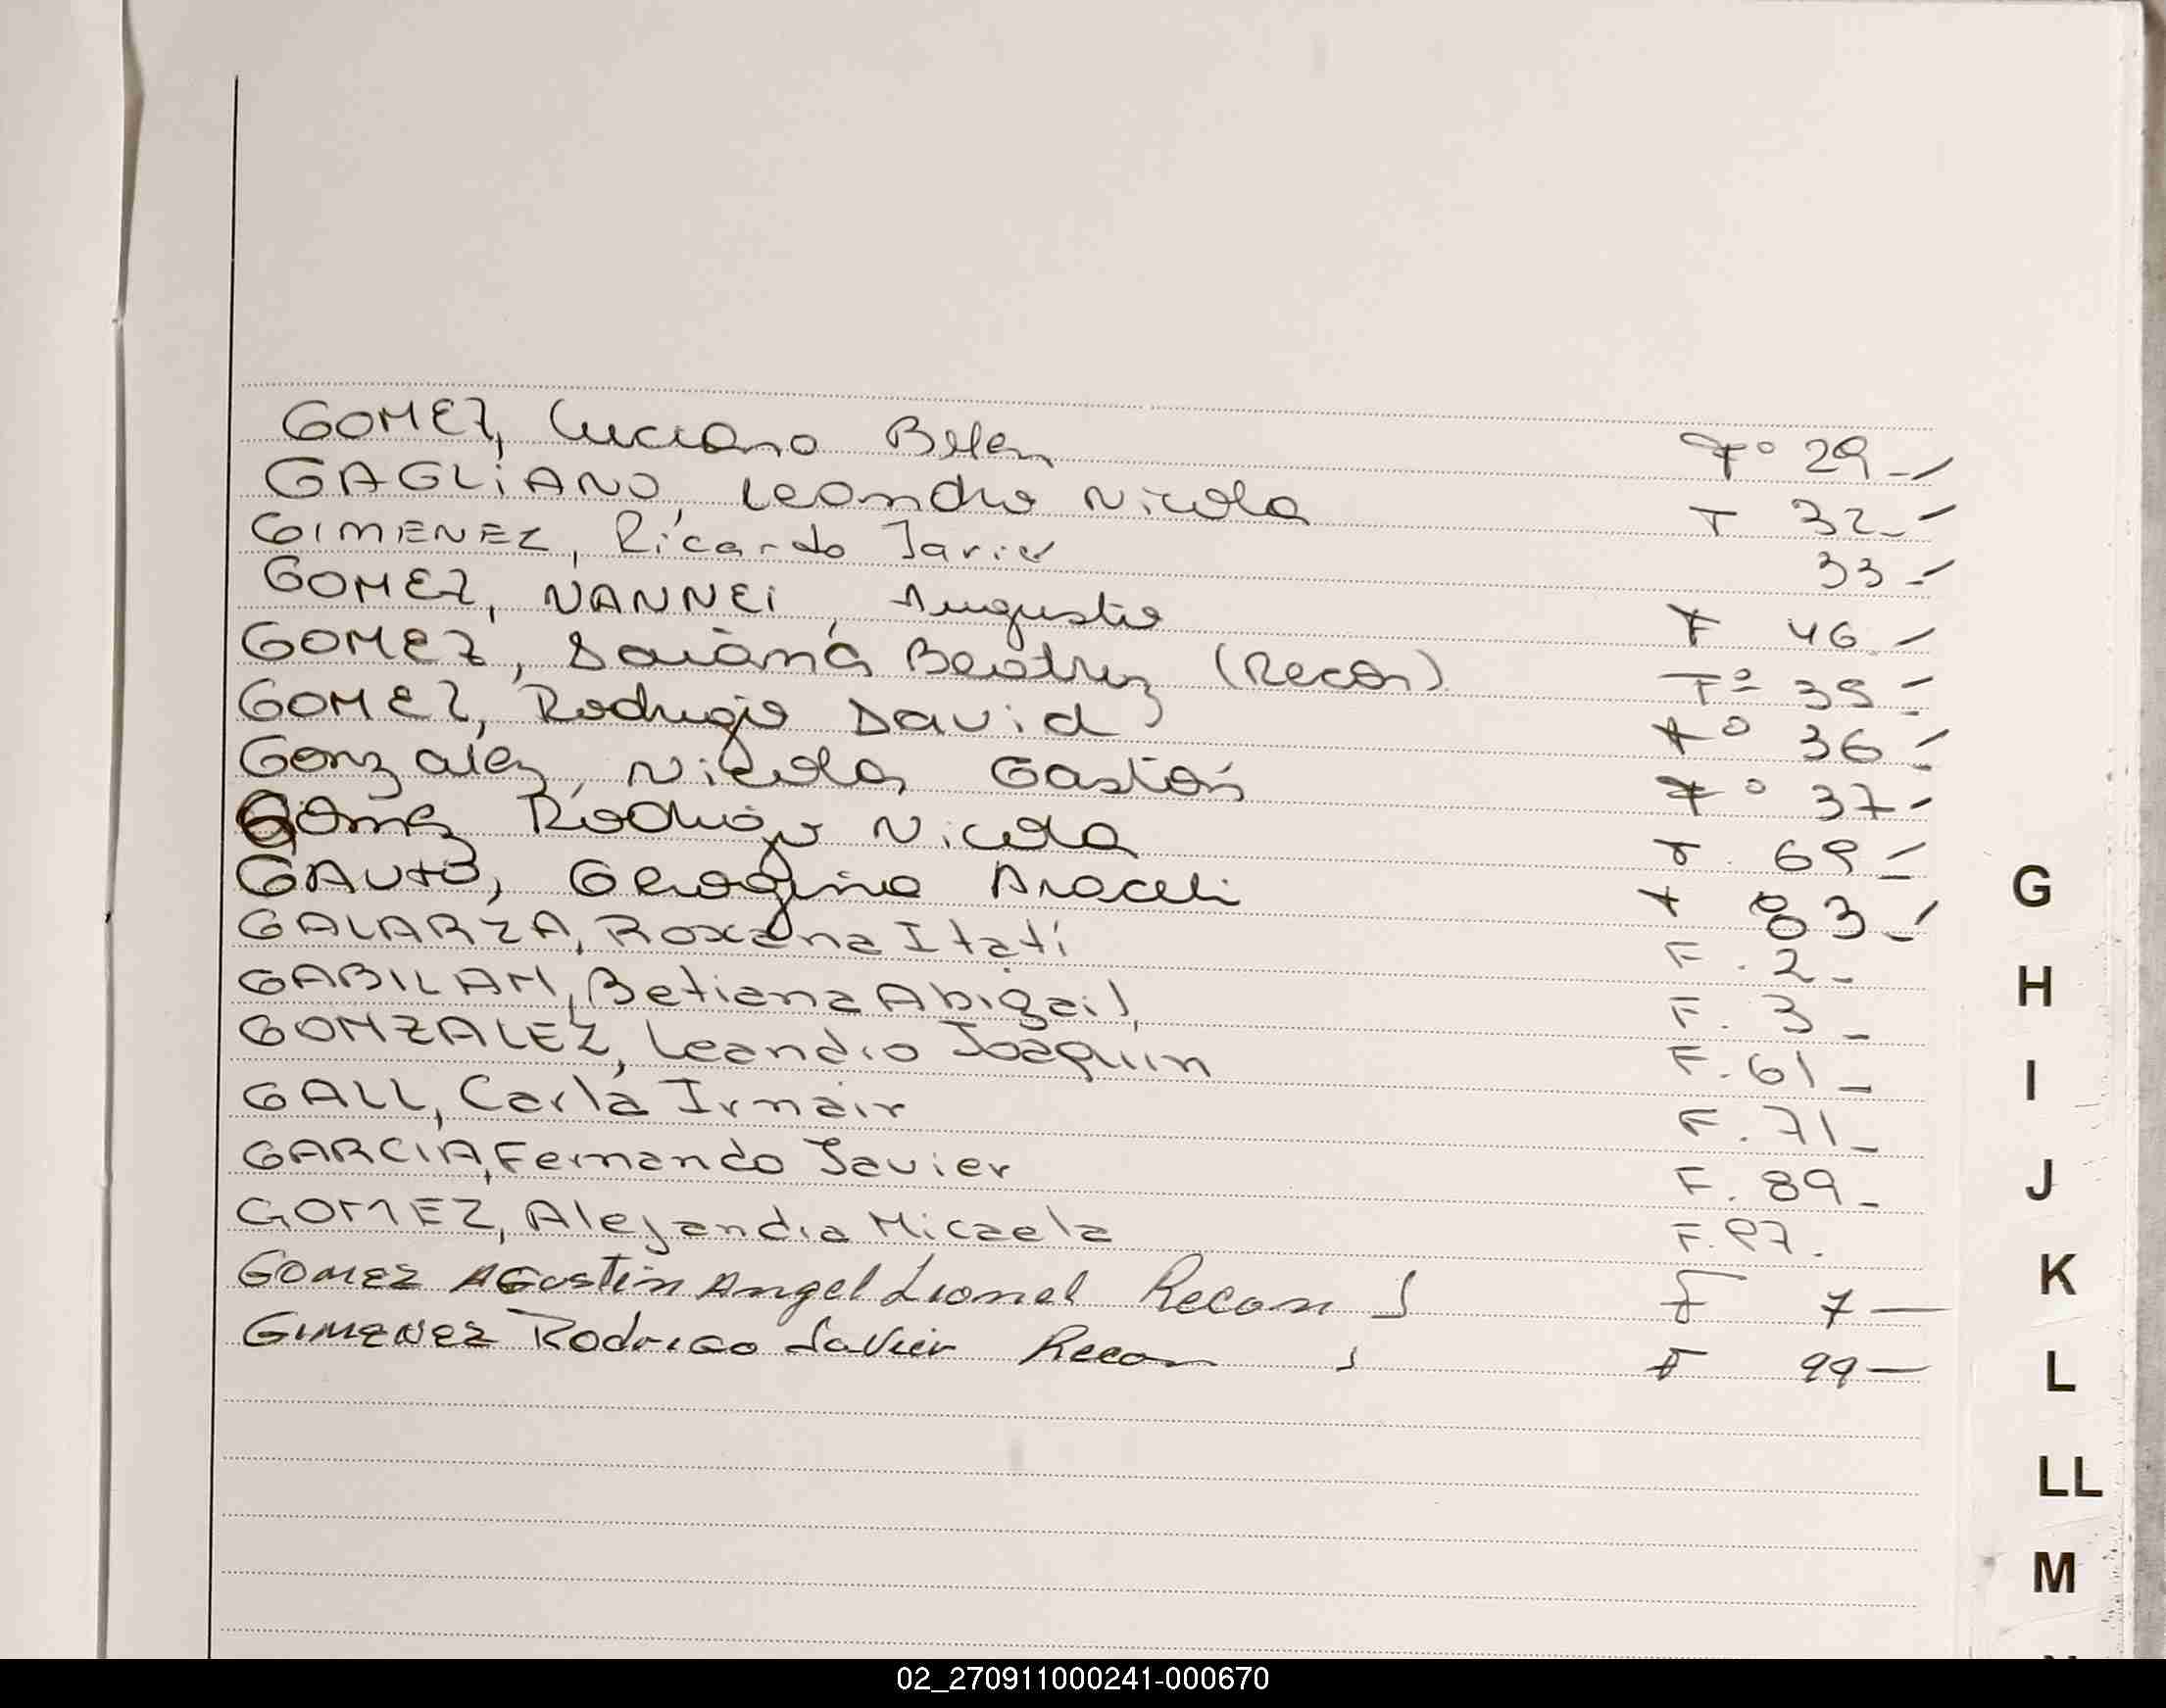 GOMEZ, Luciano Belen F° 29 -
GAGLiANO, Leandro Nicola F 32 -
GIMENEZ, Ricardo Javier 33 -
GOMEZ, NANNEi, Augusto F 46 -
GOMEZ, Daiana Beatriz (Recon) F° 35 -
GOMEZ, Rodrigo David F° 36 -
Gonzalez, Nicolas Gastón F° 37 -
Gomez Rodrigo Nicola F 69 -
GAUto, Georgina Araceli F 83 -
GALARZA, Roxana Itatí F. 2 -
GABILAN, Betiana Abigail, F. 3 -
GONZALEZ, Leandro Joaquin F. 61 -
GALL, Carla Irmair F. 71 -
GARCIA, Fernando Javier F. 89 -
GOMEZ, Alejandra Micaela F. 97.
GOMEZ AGustin Angel Lionel Recon F 7 -
GIMENEZ RodriGo Javier Recon F 99 -
G
H
I
J
K
L
LL
M
02_270911000241-000670